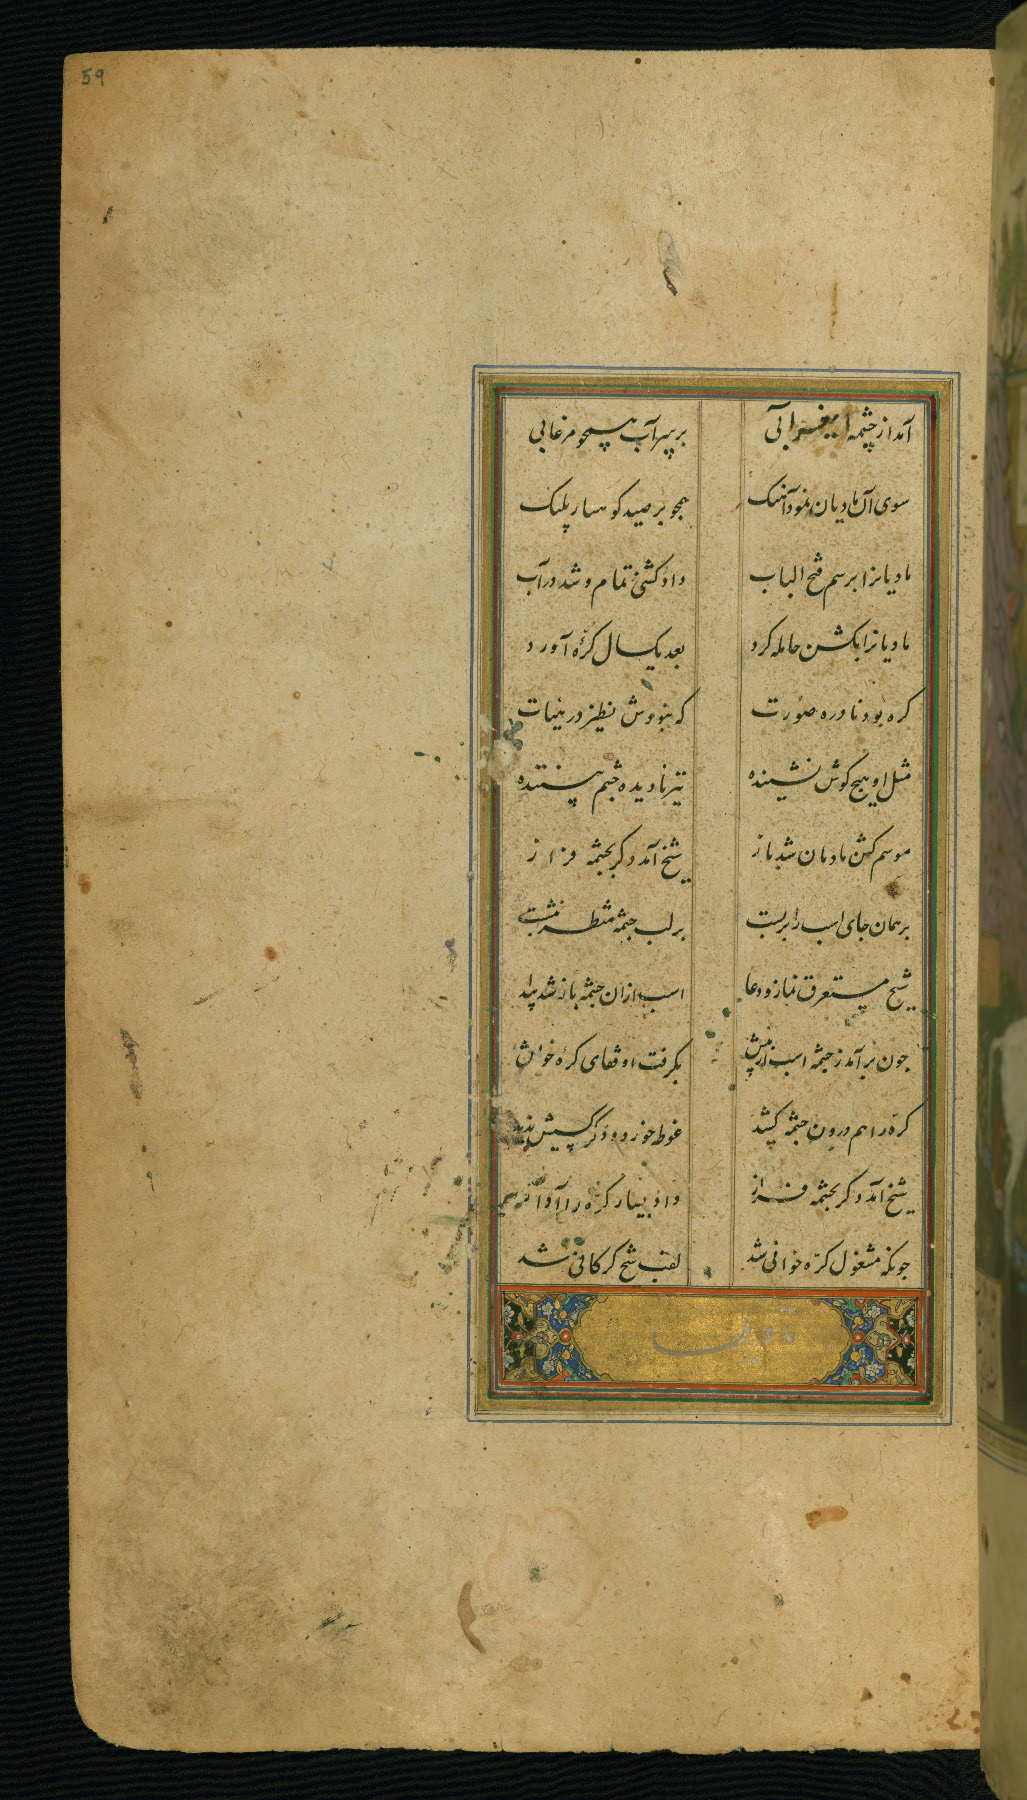 59
آمد از چشمه اسپ غرابی بر سر آب همچو مرغابی
سوی آن مادیان نمود آهنک همچو بر صید کوهسار پلنک
مادیانرا برسم فتح الباب داد کشنی تمام و شد در آب
مادیانرا بکشن حامله کرد بعد یکسال کره آورد
کره بود نادره صورت که نبودش نظیر در هیات
مثل او هیچ کوش نشینده نیز نادیده چشم بیننده
موسم کشن مادیان شد باز شیخ آمد دکر بچشمه فراز
بر همان جای اسب را بر بست بر لب چشمه منتظر بنشست
شیخ مستغرق نماز و دعا اسب ازان چشمه باز شد پیدا
چون بر آمد ز چشمه اسب از پیش بکرفت او قفای کره خویش
کره را هم درون چشمه کشید غوطه خورد و دکر کسیش ندید
شیخ آمد دکر بچشمه فراز داد بسیار کره را آواز
چونکه مشغول کره خوانی شد لقب شیخ کرکانی شد